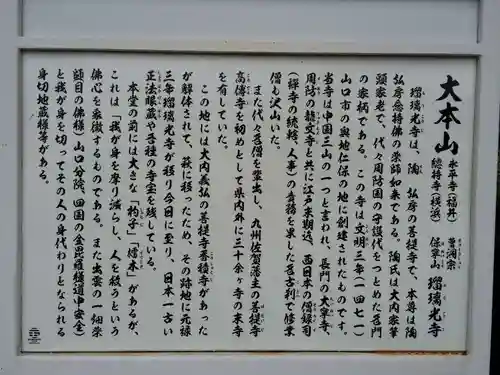 大本山 永平寺（福井） 曹洞宗
總持寺（横浜） 保寧山 瑠璃光寺
瑠璃光寺は、陶　弘房の菩提寺で、本尊は陶
弘房念持佛の薬師如来である。陶氏は大内家筆
頭家老で、代々周防国の守護代をつとめた名門
の家柄である。この寺は文明三年（一四七一）
山口市の奥地仁保の地に創建されたものです。
当寺は中国三山の一つと言われ、長門の大寧寺、
周防の龍文寺と共に江戸末期迄、西日本の僧録司
（禅寺の統轄、人事）の責務を果した名古刹で修業
僧も沢山いた。
また代々名僧を輩出し、九州佐賀藩主の菩提寺
高傳寺を初めとして県内外に三十余ヶ寺の末寺
を有していた。
この地には大内義弘の菩提寺香積寺があった
が解体されて、萩に移ったため、その跡地に元禄
三年瑠璃光寺が移り今日に至り、日本一古い
正法眼蔵や吾妻の寺宝を残している。
本堂の前には大きな「杓子」「擂木」があるが、
これは「我が身を摩り減らし、人を救うという
佛心を象徴するものである。また出雲の一畑薬
師目の佛様、山口分院、四国の金毘羅様道中安全）
と我が身を切ってその人の身代わりとなられる
身切地蔵様等がある。